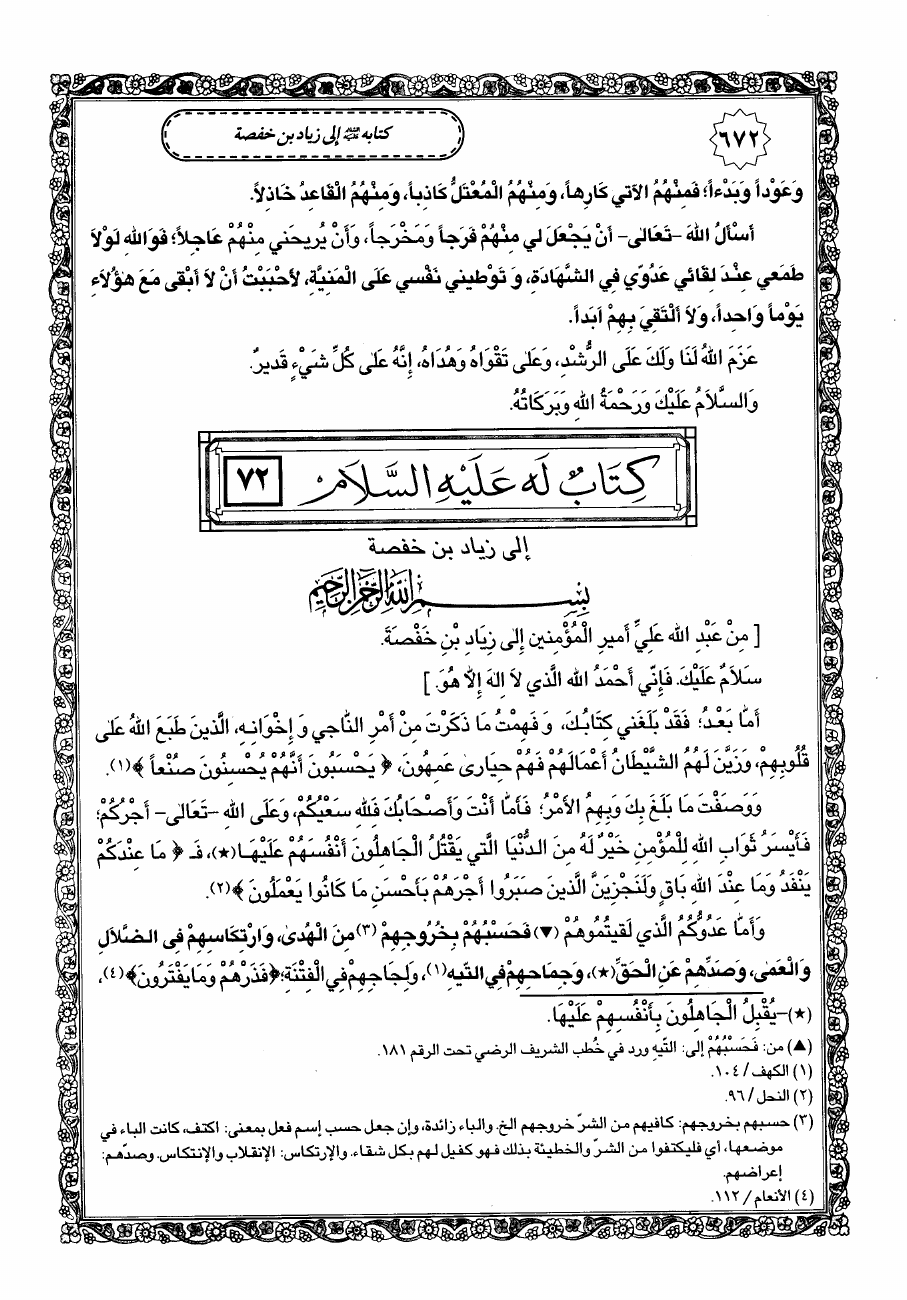 ٦٧٢
كتابه ﷺ إلى زياد بن خفصة
وَعَوْداً وَبَدْءاً؛ فَمِنْهُمُ الآتي كَارِهاً، وَمِنْهُمُ الْمُعْتَلُّ كَاذِباً، وَمِنْهُمُ الْقَاعِدُ خَاذِلاً.
أَسْأَلُ اللهَ -تَعَالى- أَنْ يَجْعَلَ لي مِنْهُمْ فَرَجاً وَمَخْرَجاً، وَأَنْ يُريحَني مِنْهُمْ عَاجِلاً؛ فَوَاللهِ لَوْلاَ
طَمَعي عِنْدَ لِقَائي عَدُوّي فِي الشَّهَادَةِ، وَ تَوْطيني نَفْسي عَلَى الْمَنِيَّةِ، لأَحْبَبْتُ أَنْ لاَ أَبْقى مَعَ هؤُلاَءِ
يَوْماً وَاحِداً، وَلاَ أَلْتَقِيَ بِهِمْ اَبَداً.
عَزَمَ اللهُ لَنَا وَلَكَ عَلَى الرُّشْدِ، وَعَلى تَقْوَاهُ وَهُدَاهُ، إِنَّهُ عَلى كُلِّ شَيْءٍ قَديرٌ.
وَالسَّلاَمُ عَلَيْكَ وَرَحْمَةُ اللهِ وَبَرَكَاتُهُ.
كِتَابٌ لَه عَلَيْهِ السَّلَامُ ٧٢
إلى زياد بن خفصة
بِسْمِ اللهِ الرَّحْمنِ الرَّحيمِ
[ مِنْ عَبْدِ الله عَلِيٍّ أَميرِ الْمُؤْمِنين إِلى زِيَادِ بْنِ خَفْصَةَ.
سَلاَمٌ عَلَيْكَ. فَإِنّي أَحْمَدُ الله الَّذي لاَ اِلهَ إِلاّ هُوَ. ]
أَمّا بَعْدُ؛ فَقَدْ بَلَغَني كِتَابُكَ، وَ فَهِمْتُ مَا ذَكَرْتَ مِنْ أَمْرِ النّاجي وَ إِخْوَانِهِ، الَّذينَ طَبَعَ اللهُ عَلى
قُلُوبِهِمْ، وَزَيَّنَ لَهُمُ الشَّيْطَانُ أَعْمَالَهُمْ فَهُمْ حِيَارى عَمِهُونَ، ﴿ يَحْسَبُونَ أَنَّهُمْ يُحْسِنُونَ صُنْعاً ﴾(١).
وَوَصَفْتَ مَا بَلَغَ بِكَ وَبِهِمُ الأَمْرُ؛ فَأَمّا أَنْتَ وَأَصْحَابُكَ فَلِلّهِ سَعْيُكُمْ، وَعَلَى اللهِ -تَعَالى- أَجْرُكُمْ؛
فَأَيْسَرُ ثَوَابِ اللهِ لِلْمُؤْمِنِ خَيْرٌ لَهُ مِنَ الدُّنْيَا الَّتي يَقْتُلُ الْجَاهِلُونَ أَنْفُسَهُمْ عَلَيْهَا(★)، فَـ ﴿ مَا عِنْدَكُمْ
يَنْفَدُ وَمَا عِنْدَ اللهِ بَاقٍ وَلَنَجْزِيَنَّ الَّذينَ صَبَرُوا أَجْرَهُمْ بِأَحْسَنِ مَا كَانُوا يَعْمَلُونَ ﴾(٢).
وَأَمّا عَدُوُّكُمُ الَّذي لَقيتُمُوهُمْ (▼) فَحَسْبُهُمْ بِخُرُوجِهِمْ (٣)مِنَ الْهُدى، وَارْتِكَاسِهِمْ فِي الضَّلاَلِ
وَالْعَمى، وَصَدِّهِمْ عَنِ الْحَقِّ(★)، وَجِمَاحِهِمْ فِي التّيهِ(١)، وَلِجَاجِهِمْ فِي الْفِتْنَةِ؛﴿فَذَرْهُمْ وَمَا يَفْتَرُونَ﴾(٤)،
(★)-يُقْبِلُ الْجَاهِلُونَ بِأَنْفُسِهِمْ عَلَيْهَا.
(▲) من: فَحَسْبُهُمْ إلى: التّيهِ ورد في خُطب الشريف الرضي تحت الرقم ١٨١.
(١) الكهف / ١٠٤.
(٢) النحل / ٩٦.
(٣) حسبهم بخروجهم: كافيهم من الشرّ خروجهم الخ. والباء زائدة، وإن جعل حسب إسم فعل بمعنى: اكتف، كانت الباء في
موضعها، أي فليكتفوا من الشرّ والخطيئة بذلك فهو كفيل لهم بكل شقاء. والإرتكاس: الإنقلاب والإنتكاس. وصدّهم:
إعراضهم.
(٤) الأنعام / ١١٢.